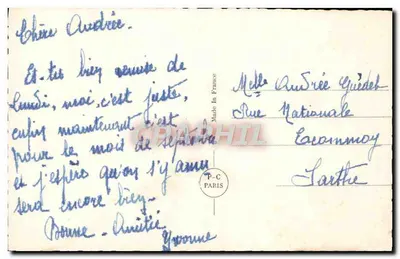 Chère Andrée.
Es-tu bien remise de
lundi, moi, c'est juste,
enfin maintenant c'est
pour le mois de septembre
et j'espère qu'on s'y amu
sera encore bien.
Bonne Amitié
Yvonne
Made in France
P-C
PARIS
Melle Andrée Guédet
Rue Nationale
Ecommoy
Sarthe